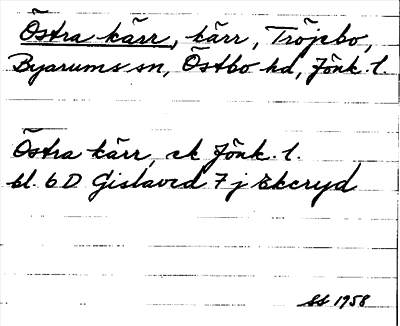 Östra kärr, kärr, Tröjebo,
Byarums sn, Östbo hd, Jönk. l.
Östra kärr, ek Jönk. l.
bl. 6 D Gislaved 7 j Ekeryd
SS 1958